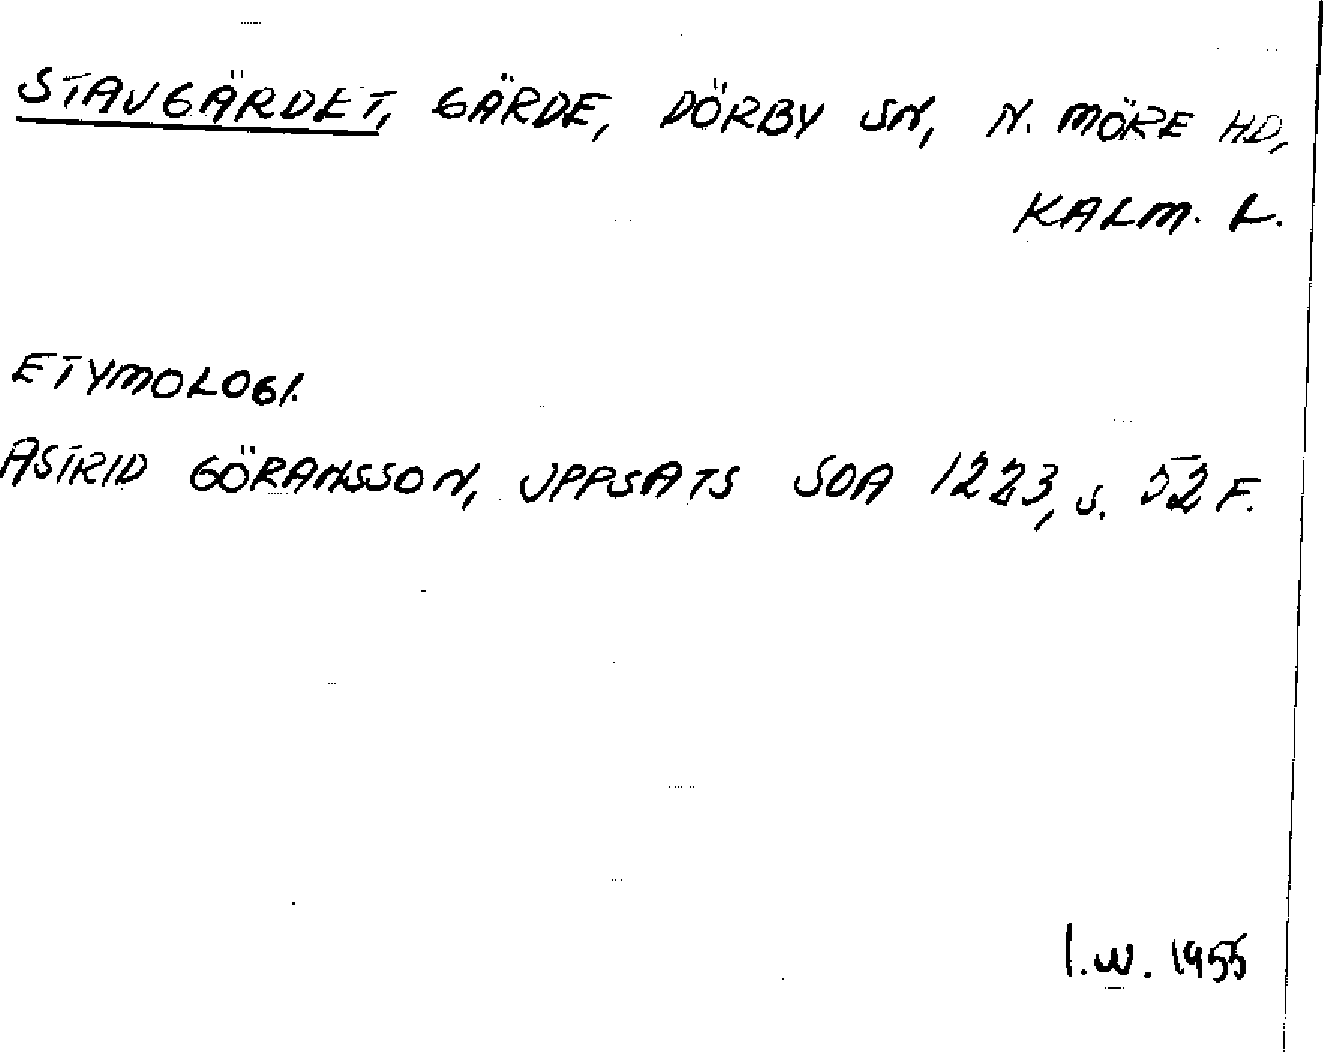 STAVGÄRDET, GÄRDE, DÖRBY SN, N. MÖRE HD,
KALM. L.
ETYMOLOGI.
ASTRID GÖRANSSON, UPPSATS SOA 1223, S. 52 F.
I.W. 1955